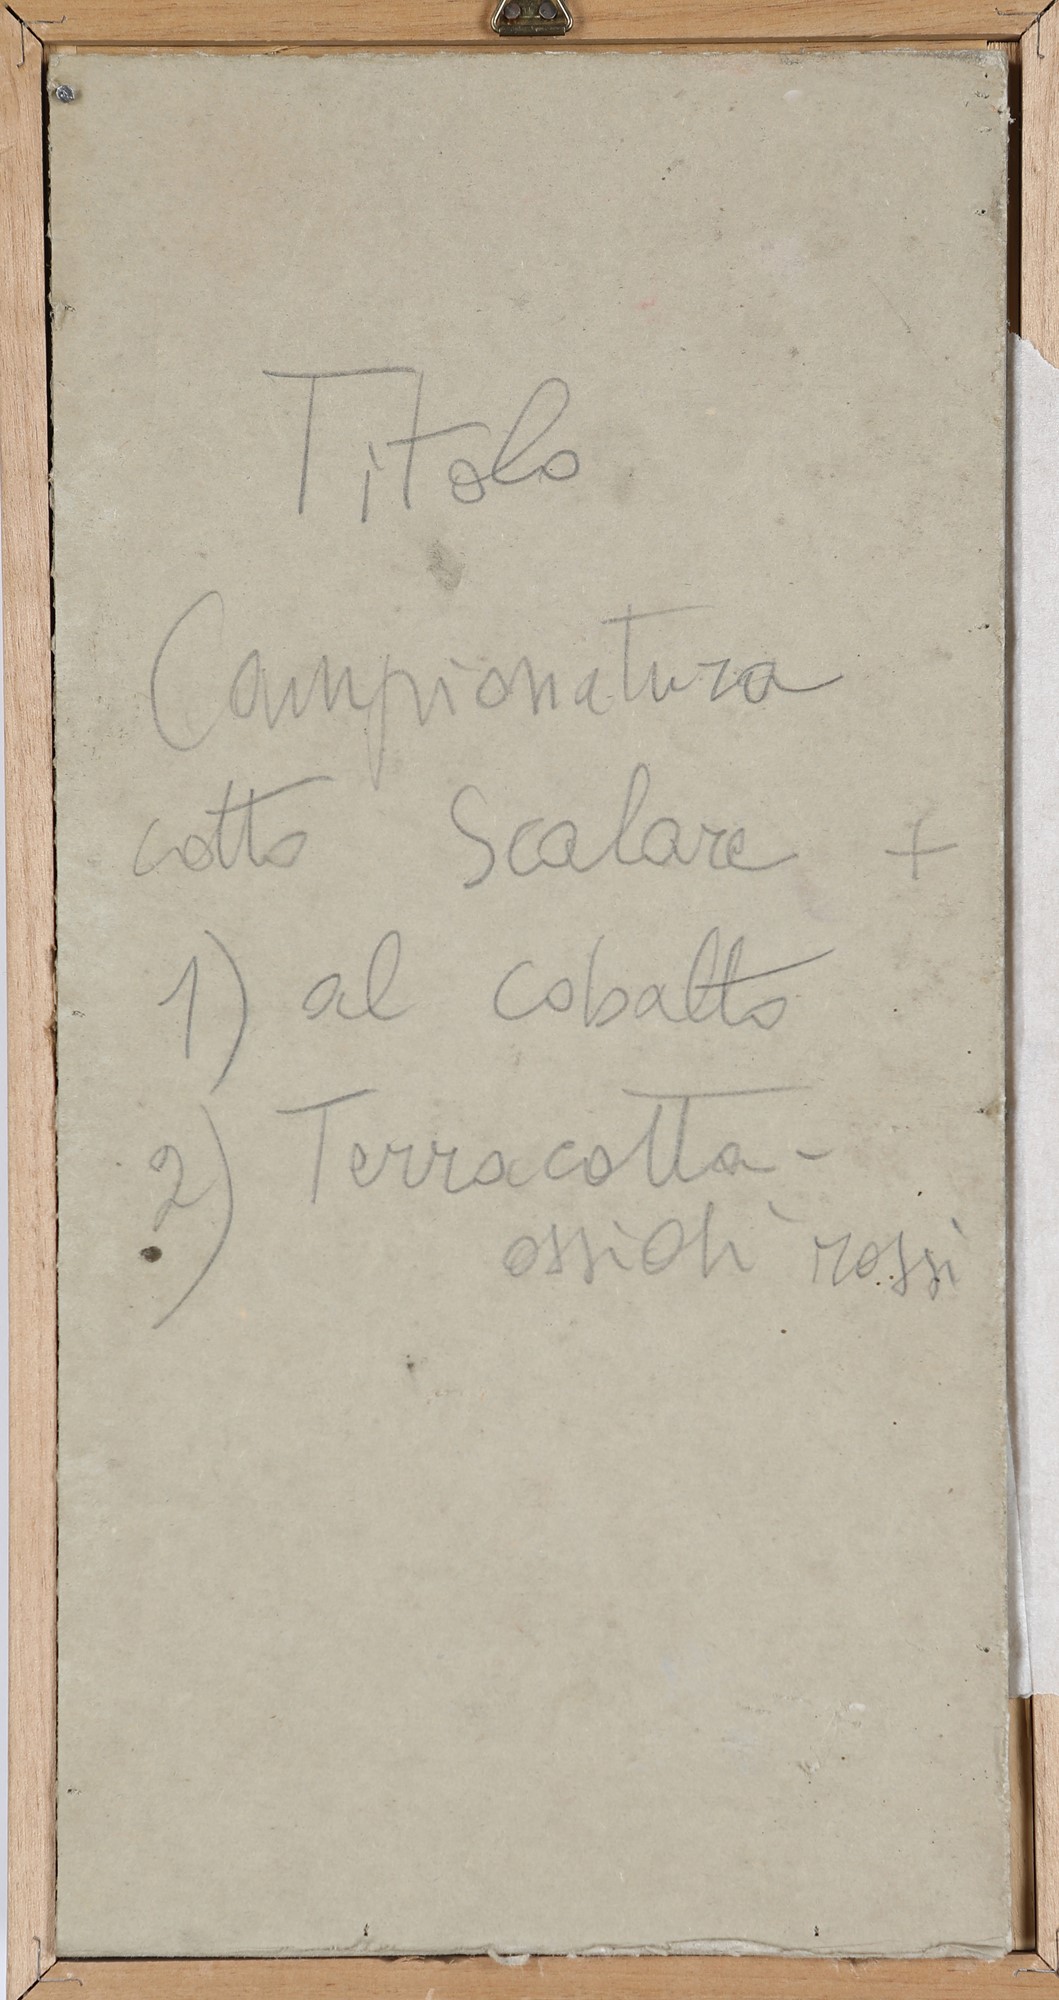 Titolo
Campionatura
cotto Scalare +
1) al cobalto
2) Terracotta -
ossidi rossi